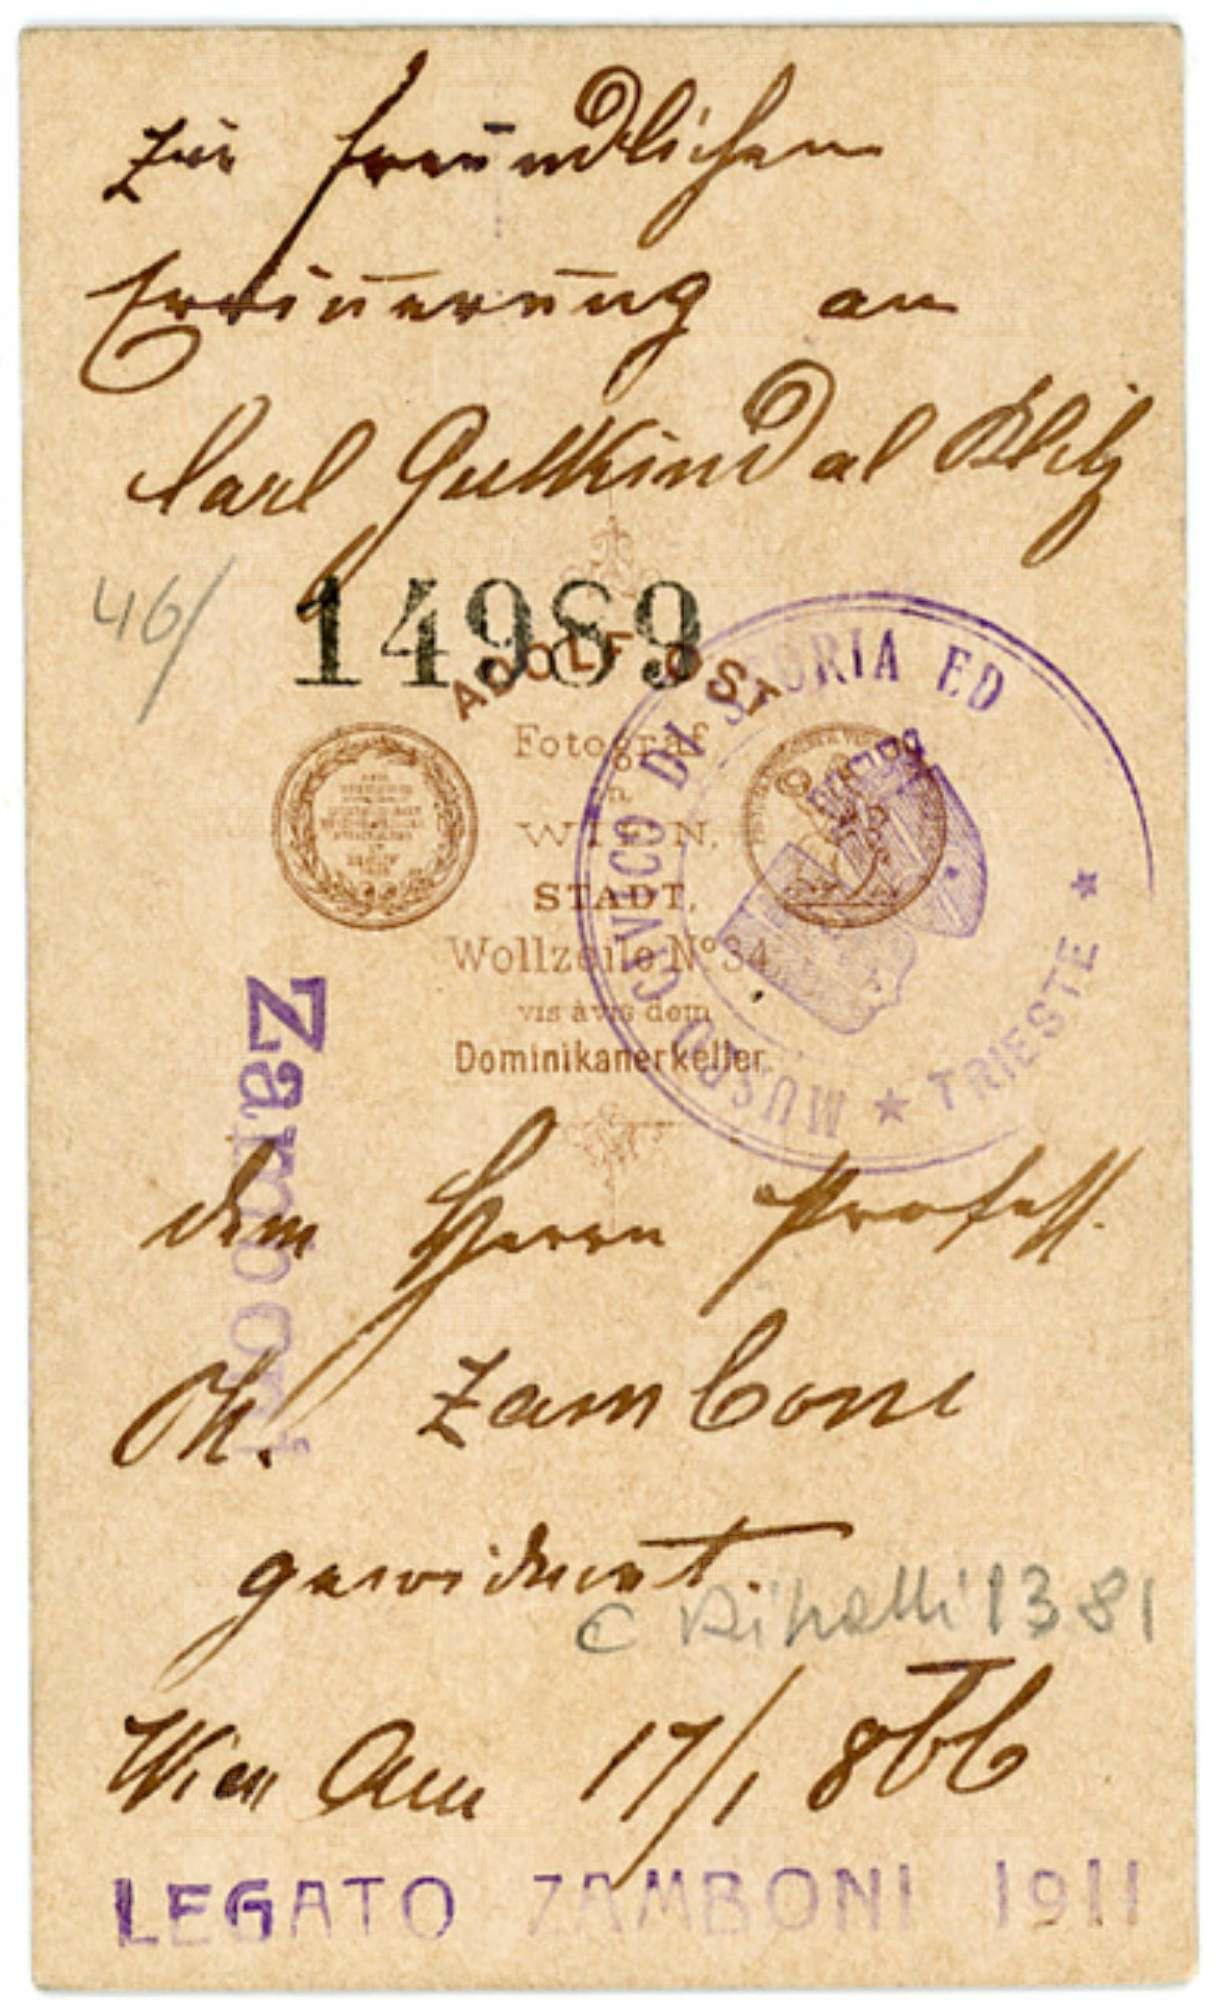 Zur freundlichen
Erinnerung an
Carl Gutkind al Blitz
46/
14989
ADOLF OST
Fotograf
in
WIEN,
STADT,
Wollzeile No 34
vis à vis dem
Dominikanerkeller.
MUSEO CIVICO DI STORIA ED
★ TRIESTE ★
Zamboni
dem Herrn Profess.
Zamboni
gewidmet.
C 1381
Wien Am 17/1 866
LEGATO ZAMBONI 1911